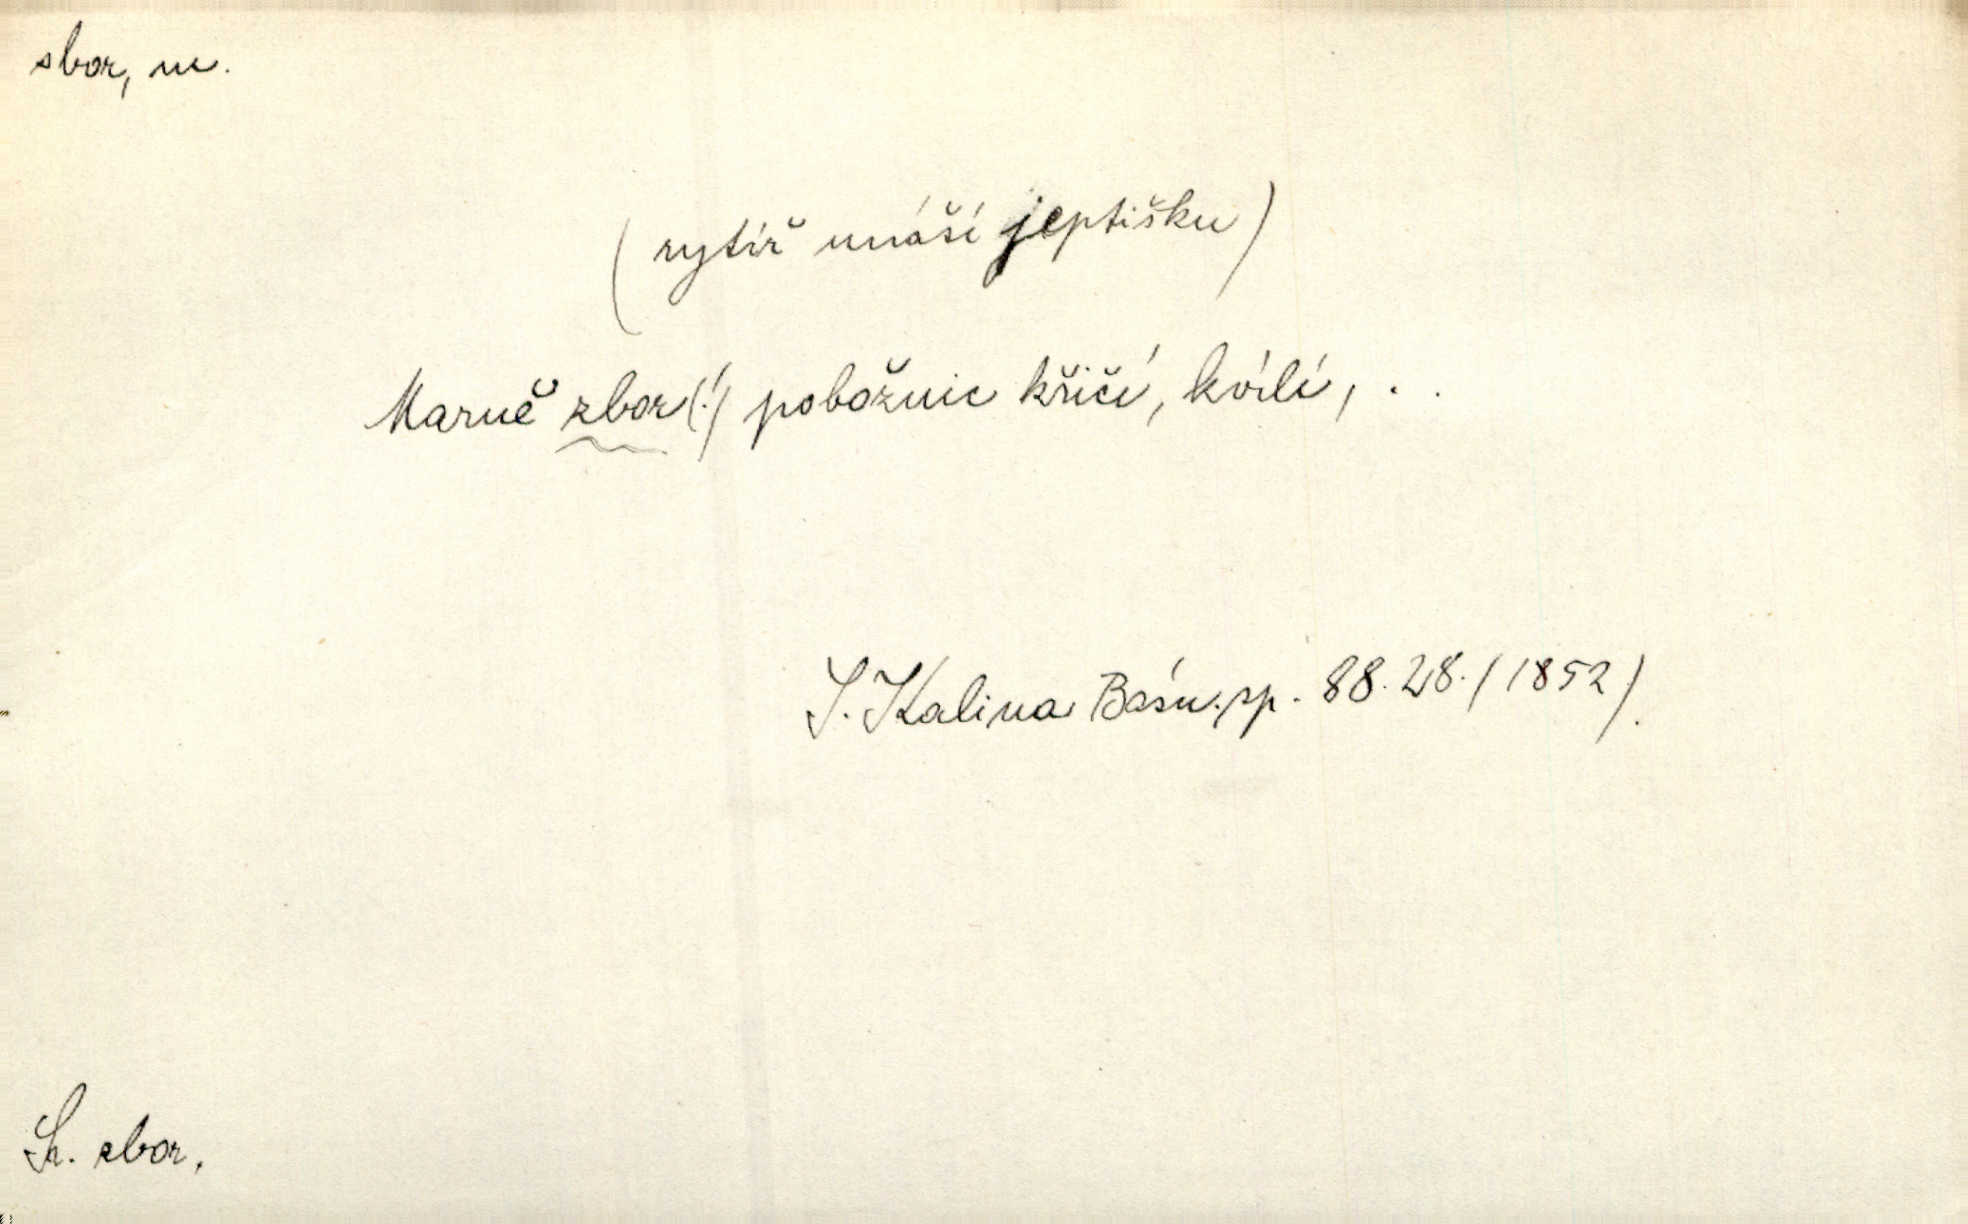 sbor, m.
(rytíř unáší jeptišku)
Marně zbor(!) pobožnic křičí, kvílí, . .
J. Kalina Básn. sp. 88. 28. (1852).
Sr. zbor.